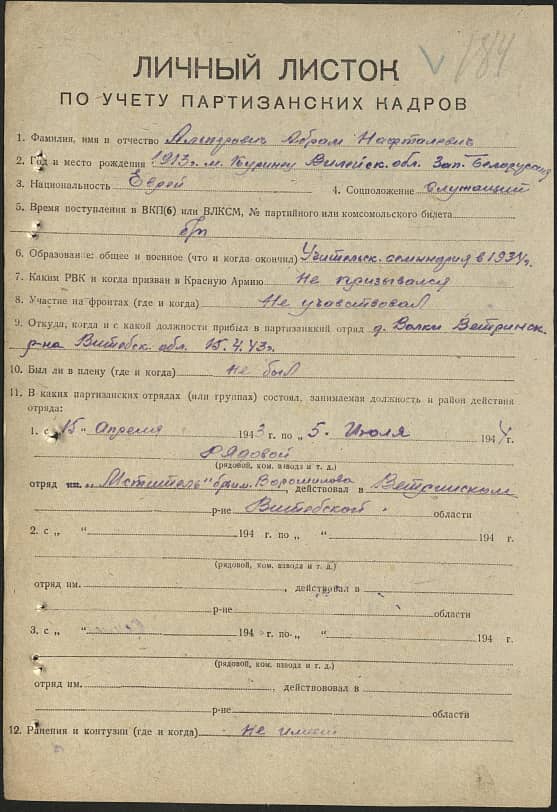 184
ЛИЧНЫЙ ЛИСТОК
ПО УЧЕТУ ПАРТИЗАНСКИХ КАДРОВ
1. Фамилия, имя и отчество Абрам Нафталевич
2. Год и место рождения 1913 г. м. Куринец Вилейск. обл. Зап. Белоруссия
3. Национальность Еврей 4. Соцположение Служащий
5. Время поступления в ВКП(б) или ВЛКСМ, № партийного или комсомольского билета
б/п
6. Образование: общее и военное (что и когда окончил) Учительск. семинария в 1934 г.
7. Каким РВК и когда призван в Красную Армию Не призывался
8. Участие на фронтах (где и когда) Не учавствовал
9. Откуда, когда и с какой должности прибыл в партизанский отряд д. Волки Ветринск.
р-на Витебск. обл. 15.4.43 г.
10. Был ли в плену (где и когда) не был
11. В каких партизанских отрядах (или группах) состоял, занимаемая должность и район действия
отряда:
1. с „15„ Апреля 1943 г. по „5. Июля 1944 г.
Рядовой
(рядовой, ком. взвода и т. д.)
отряд им. „Мститель" бр. им. Ворошилова, действовал в Ветринском
р-не Витебской области
2. с „ “ 194 г. по „ “ 194 г.
(рядовой, ком. взвода и т. д.)
отряд им. , действовал в
р-не области
3. с „ “ 194 г. по „ “ 194 г.
(рядовой, ком. взвода и т. д.)
отряд им. , действовал в
р-не области
12. Ранения и контузии (где и когда) не имеет